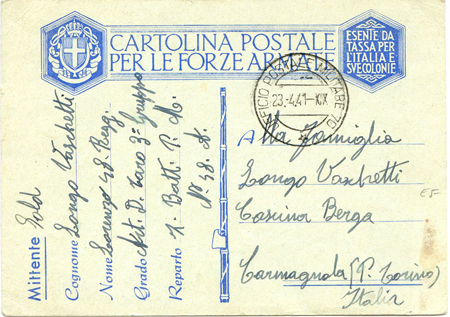 CARTOLINA POSTALE
PER LE FORZE ARMATE
ESENTE DA
TASSA PER
L'ITALIA E
SVE COLONIE
UFFICIO POSTA MILITARE
23.4.41-XIX
Mittente Sold
Cognome Longo Vaschetti
Nome Lorenzo 48° Regg.
Grado Art. D. Taro 3° Gruppo
Reparto 1° Batt. P. M.
N° 48. A.
Alla Famiglia
Longo Vaschetti
Cascina Berga
Carmagnola (P. Torino)
Italia